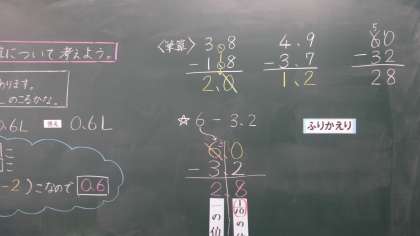 について考えよう。
あります。
Lのこるかな。
0.6L 答え 0.6L
-2)こなので 0.6
〈筆算〉
3.8
-1.8
2.0
4.9
-3.7
1.2
5
60
-32
28
☆6-3.2
ふりかえり
6.0
-3.2
2.8
一の位